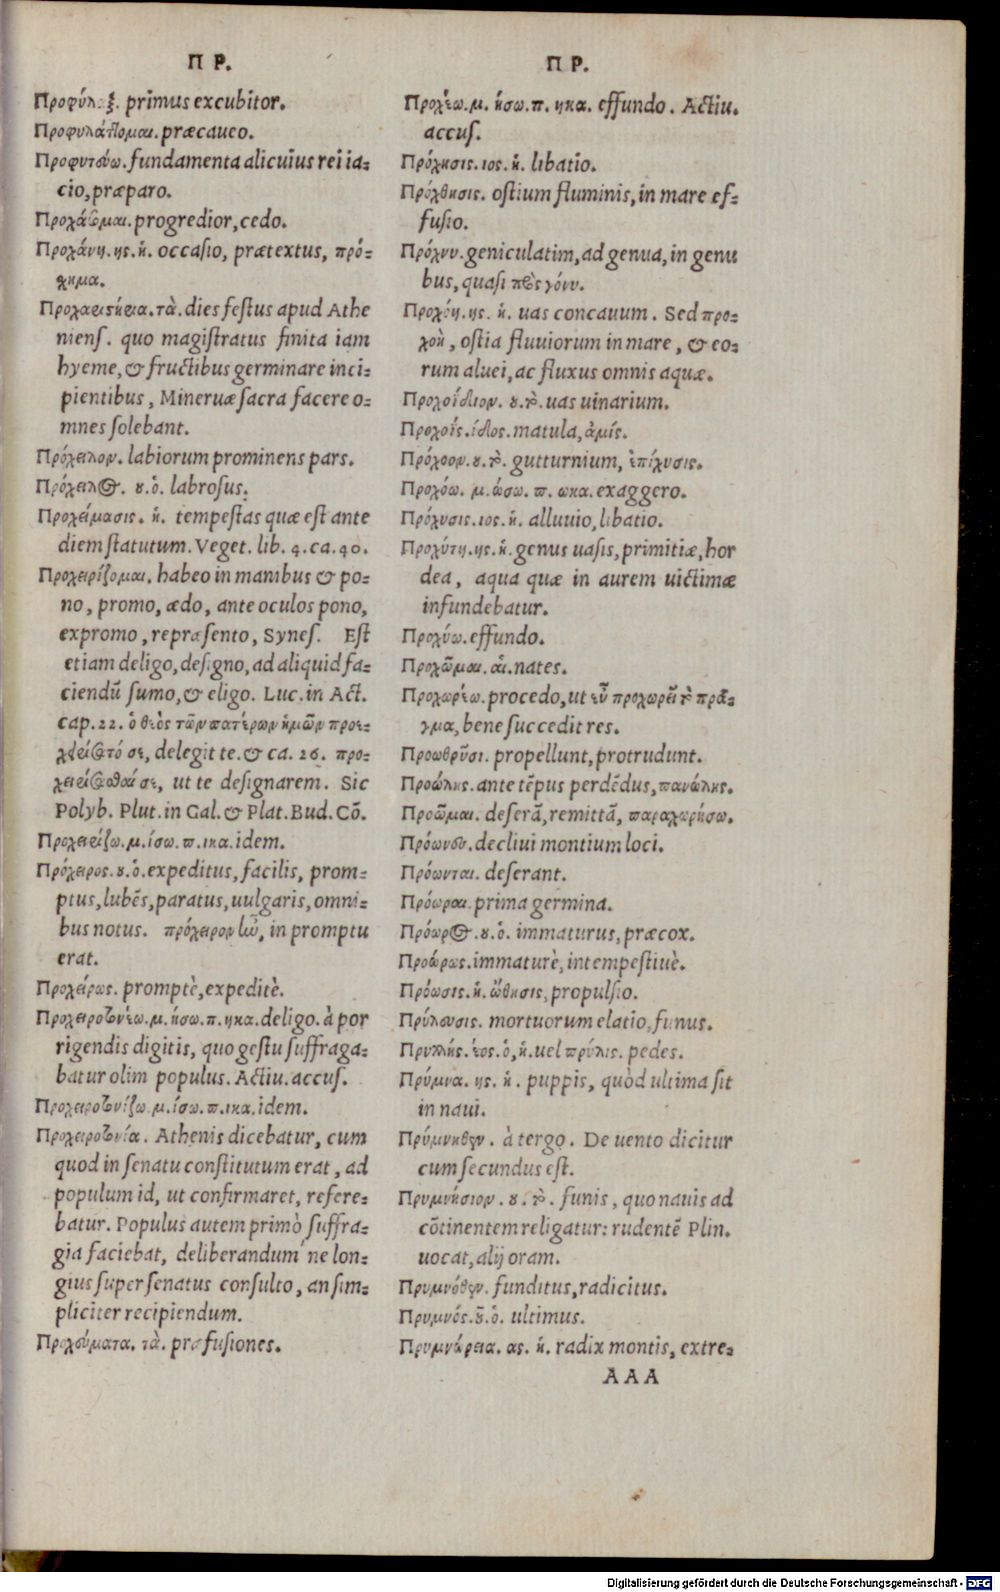 Π Ρ.
Προφύλαξ. primus excubitor.
Προφυλάττομαι. præcaueo.
Προφυτεύω. fundamenta alicuius rei ia-
cio, præparo.
Προχάζομαι. progredior, cedo.
Προχάνη. ης. ἡ. occasio, prætextus, πρό-
χημα.
Προχαριστήρια. τὰ. dies festus apud Athe
niens. quo magistratus finita iam
hyeme, & fructibus germinare inci-
pientibus, Mineruæ sacra facere o-
mnes solebant.
Πρόχειλον. labiorum prominens pars.
Πρόχειλος. ου. ὁ. labrosus.
Προχείμασις. ἡ. tempestas quæ est ante
diem statutum. Veget. lib. 4. ca. 40.
Προχειρίζομαι. habeo in manibus & po-
no, promo, ædo, ante oculos pono,
expromo, repræsento, Synes. Est
etiam deligo, designo, ad aliquid fa-
ciendũ sumo, & eligo. Luc. in Act.
cap. 22. ὁ θεὸς τῶν πατέρων ἡμῶν προε-
χειρίσατό σε, delegit te. & ca. 26. προ-
χειρίσασθαί σε, ut te designarem. Sic
Polyb. Plut. in Gal. & Plat. Bud. Cõ.
Προχειρίζω. μ. ίσω. π. ικα. idem.
Πρόχειρος. ου. ὁ. expeditus, facilis, prom-
ptus, lubẽs, paratus, uulgaris, omni-
bus notus. πρόχειρον ἦν, in promptu
erat.
Προχείρως. promptè, expeditè.
Προχειροτονέω. μ. ήσω. π. ηκα. deligo. à por
rigendis digitis, quo gestu suffraga-
batur olim populus. Actiu. accus.
Προχειροτονίζω. μ. ίσω. π. ικα. idem.
Προχειροτονία. Athenis dicebatur, cum
quod in senatu constitutum erat, ad
populum id, ut confirmaret, refere-
batur. Populus autem primò suffra-
gia faciebat, deliberandum ne lon-
gius super senatus consulto, an sim-
pliciter recipiendum.
Προχεύματα. τὰ. profusiones.
Π Ρ.
Προχέω. μ. ήσω. π. ηκα. effundo. Actiu.
accus.
Πρόχησις. ιος. ἡ. libatio.
Πρόχθησις. ostium fluminis, in mare ef-
fusio.
Πρόχνυ. geniculatim, ad genua, in genu
bus, quasi πρὸς γόνυ.
Προχόη. ης. ἡ. uas concauum. Sed προ-
χοὴ, ostia fluuiorum in mare, & eo-
rum aluei, ac fluxus omnis aquæ.
Προχοΐδιον. ου. τὸ. uas uinarium.
Προχοΐς. ίδος. matula, ἀμίς.
Πρόχοον. ου. τὸ. gutturnium, ἐπίχυσις.
Προχόω. μ. ώσω. π. ωκα. exaggero.
Πρόχυσις. ιος. ἡ. alluuio, libatio.
Προχύτη. ης. ἡ. genus uasis, primitiæ, hor
dea, aqua quæ in aurem uictimæ
infundebatur.
Προχύω. effundo.
Προχῶμαι. αἱ. nates.
Προχωρέω. procedo, ut εὖ προχωρεῖ τὸ πρᾶ-
γμα, bene succedit res.
Προωθοῦσι. propellunt, protrudunt.
Προώλης. ante tẽpus perdẽdus, πανώλης.
Προῶμαι. deserã, remittã, παραχωρήσω.
Πρόωνες. decliui montium loci.
Πρόωνται. deserant.
Πρόωραι. prima germina.
Πρόωρος. ου. ὁ. immaturus, præcox.
Προώρως. immaturè, intempestiuè.
Πρόωσις. ἡ. ὤθησις, propulsio.
Πρύλευσις. mortuorum elatio, funus.
Πρυλὴς. έος. ὁ, ἡ. uel πρύλις. pedes.
Πρύμνα. ης. ἡ. puppis, quòd ultima sit
in naui.
Πρύμνηθεν. à tergo. De uento dicitur
cum secundus est.
Πρυμνήσιον. ου. τὸ. funis, quo nauis ad
cõtinentem religatur: rudentẽ Plin.
uocat, alij oram.
Πρυμνόθεν. funditus, radicitus.
Πρυμνός. οῦ. ὁ. ultimus.
Πρυμνώρεια. ας. ἡ. radix montis, extre-
AAA
Digitalisierung gefördert durch die Deutsche Forschungsgemeinschaft - DFG